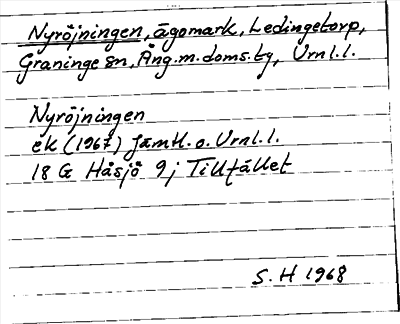 Nyröjningen, ägomark, Ledingetorp,
Graninge sn, Ång.m.doms.tg, Vrnl.l.
Nyröjningen
ek (1967) Jämtl.o.Vrnl.l.
18 G Håsjö 9j Tillfället
S.H 1968